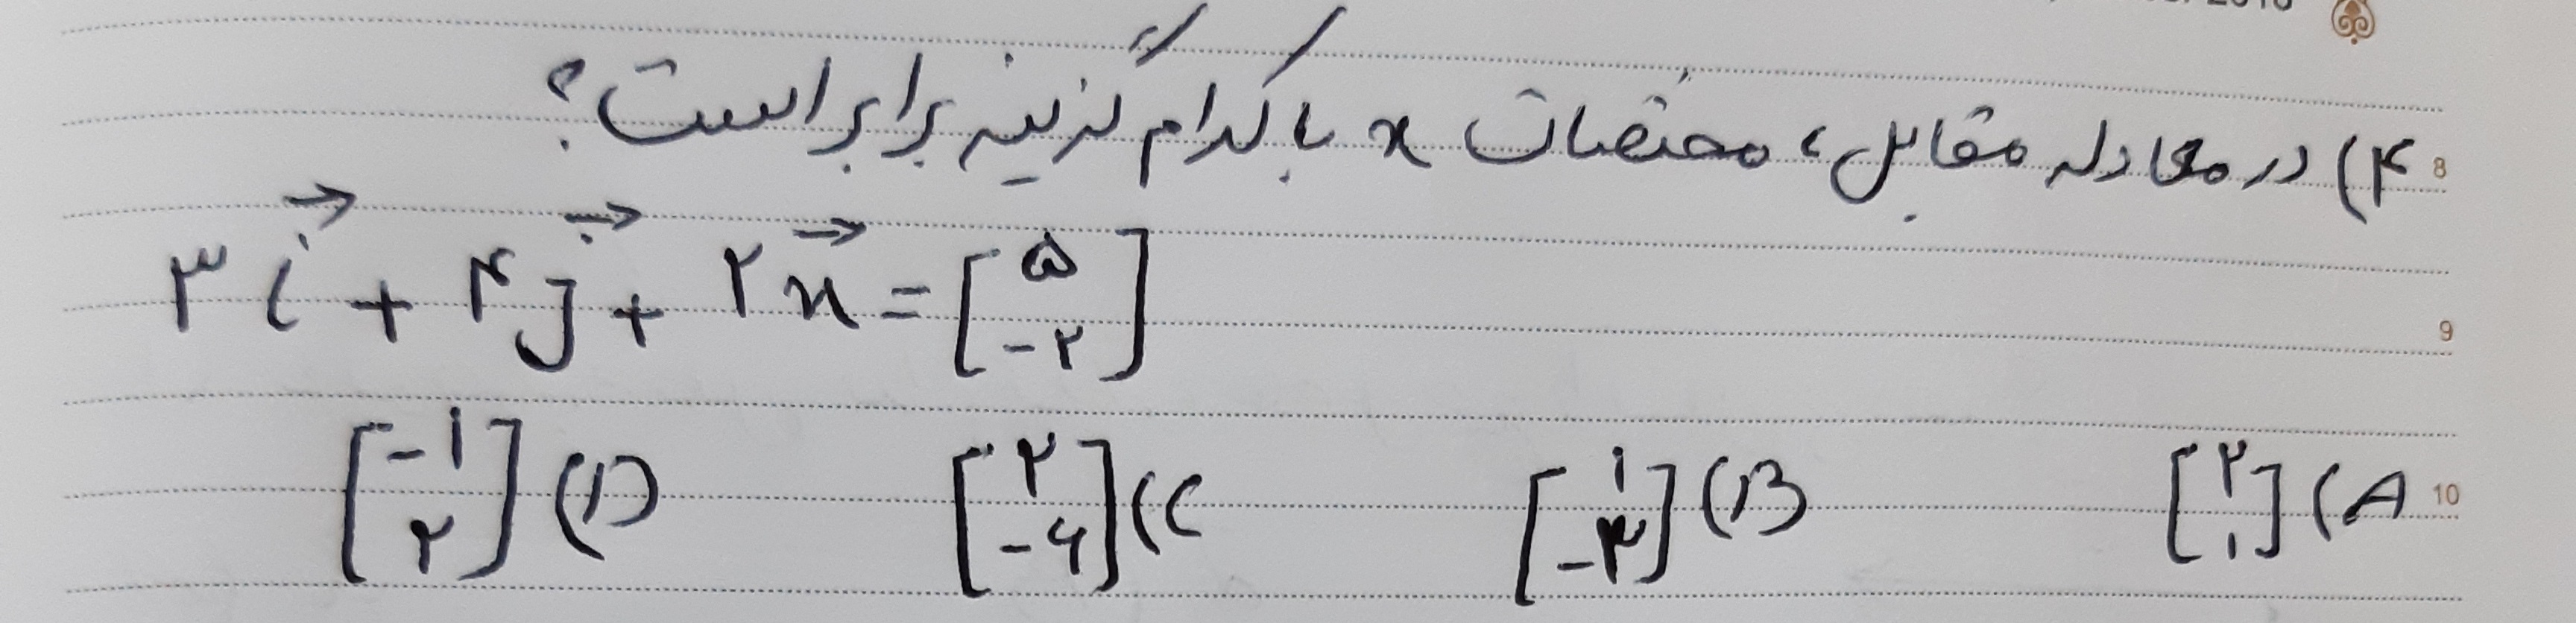 ۴) در معادله مقابل، مختصات x با کدام گزینه برابر است؟ 8
۳i⃗ + ۴j⃗ + ۲x⃗ = [۵ -۲] 9
A) [۲ ۱] B) [۱ -۳] C) [۲ -۶] D) [-۱ ۲] 10